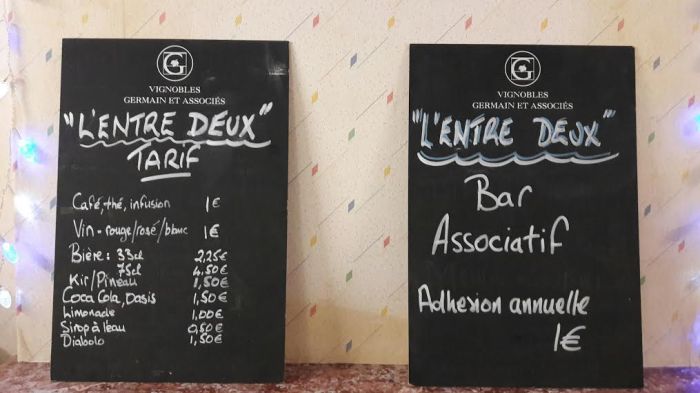 VIGNOBLES
GERMAIN ET ASSOCIÉS
"L'ENTRE DEUX"
TARIF
Café, thé, infusion 1€
Vin - rouge/rosé/blanc 1€
Bière : 33cl 2,25€
75cl 4,50€
Kir/Pineau 1,50€
Coca Cola, Oasis 1,50€
Limonade 1,00€
Sirop à l'eau 0,50€
Diabolo 1,50€
VIGNOBLES
GERMAIN ET ASSOCIÉS
"L'ENTRE DEUX"
Bar
Associatif
Adhesion annuelle
1€